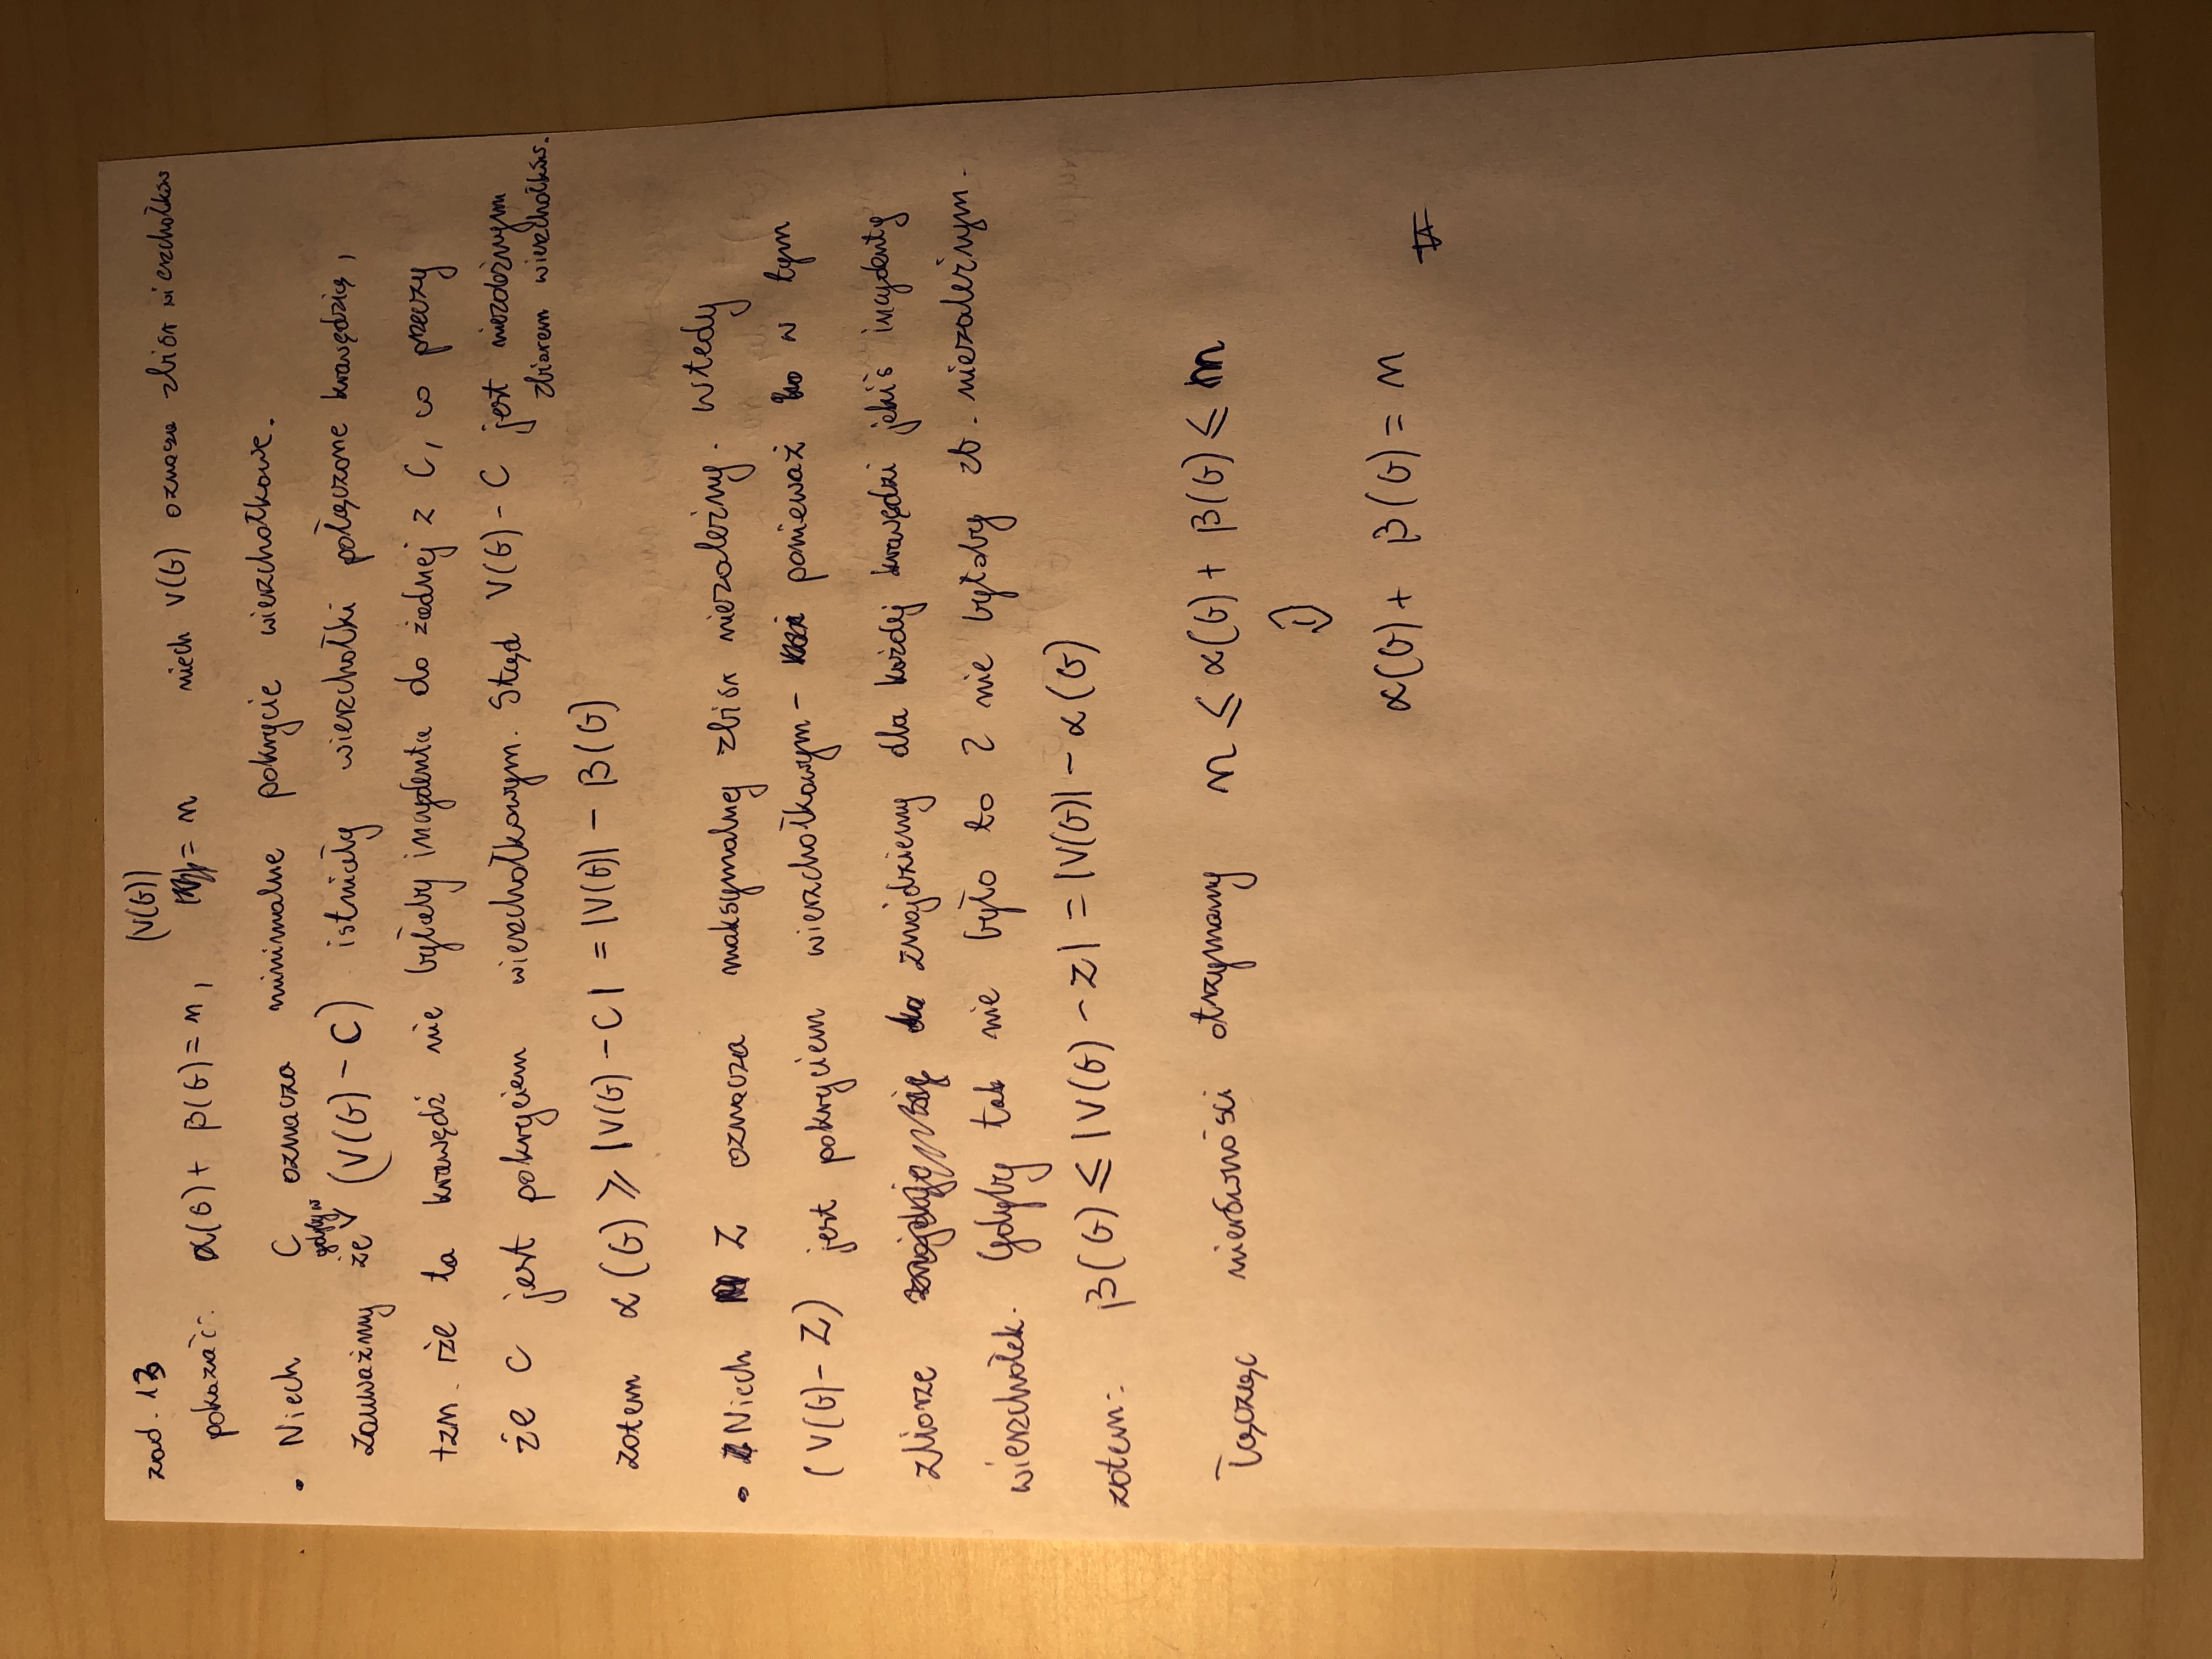 zad. 13
|V(G)|
pokazać: α(G) + β(G) = n, = n niech V(G) oznacza zbiór wierzchołków
• Niech C oznacza minimalne pokrycie wierzchołkowe.
gdyby w
Zauważmy że (V(G) - C) istniały wierzchołki połączone krawędzią,
tzn. że ta krawędź nie byłaby incydenta do żadnej z C, co przeczy
że C jest pokryciem wierzchołkowym. Stąd V(G) - C jest niezależnym
zbiorem wierzchołków.
zatem α(G) ⩾ |V(G) - C| = |V(G)| - β(G)
• Niech Z oznacza maksymalny zbiór niezależny. Wtedy
(V(G) - Z) jest pokryciem wierzchołkowym - ponieważ w tym
zbiorze znajdziemy dla każdej krawędzi jakiś incydenty
wierzchołek. Gdyby tak nie było to Z nie byłoby zb. niezależnym.
zatem: β(G) ⩽ |V(G) - Z| = |V(G)| - α(G)
Łącząc nierówności otrzymamy n ⩽ α(G) + β(G) ⩽ n
⇓
α(G) + β(G) = n